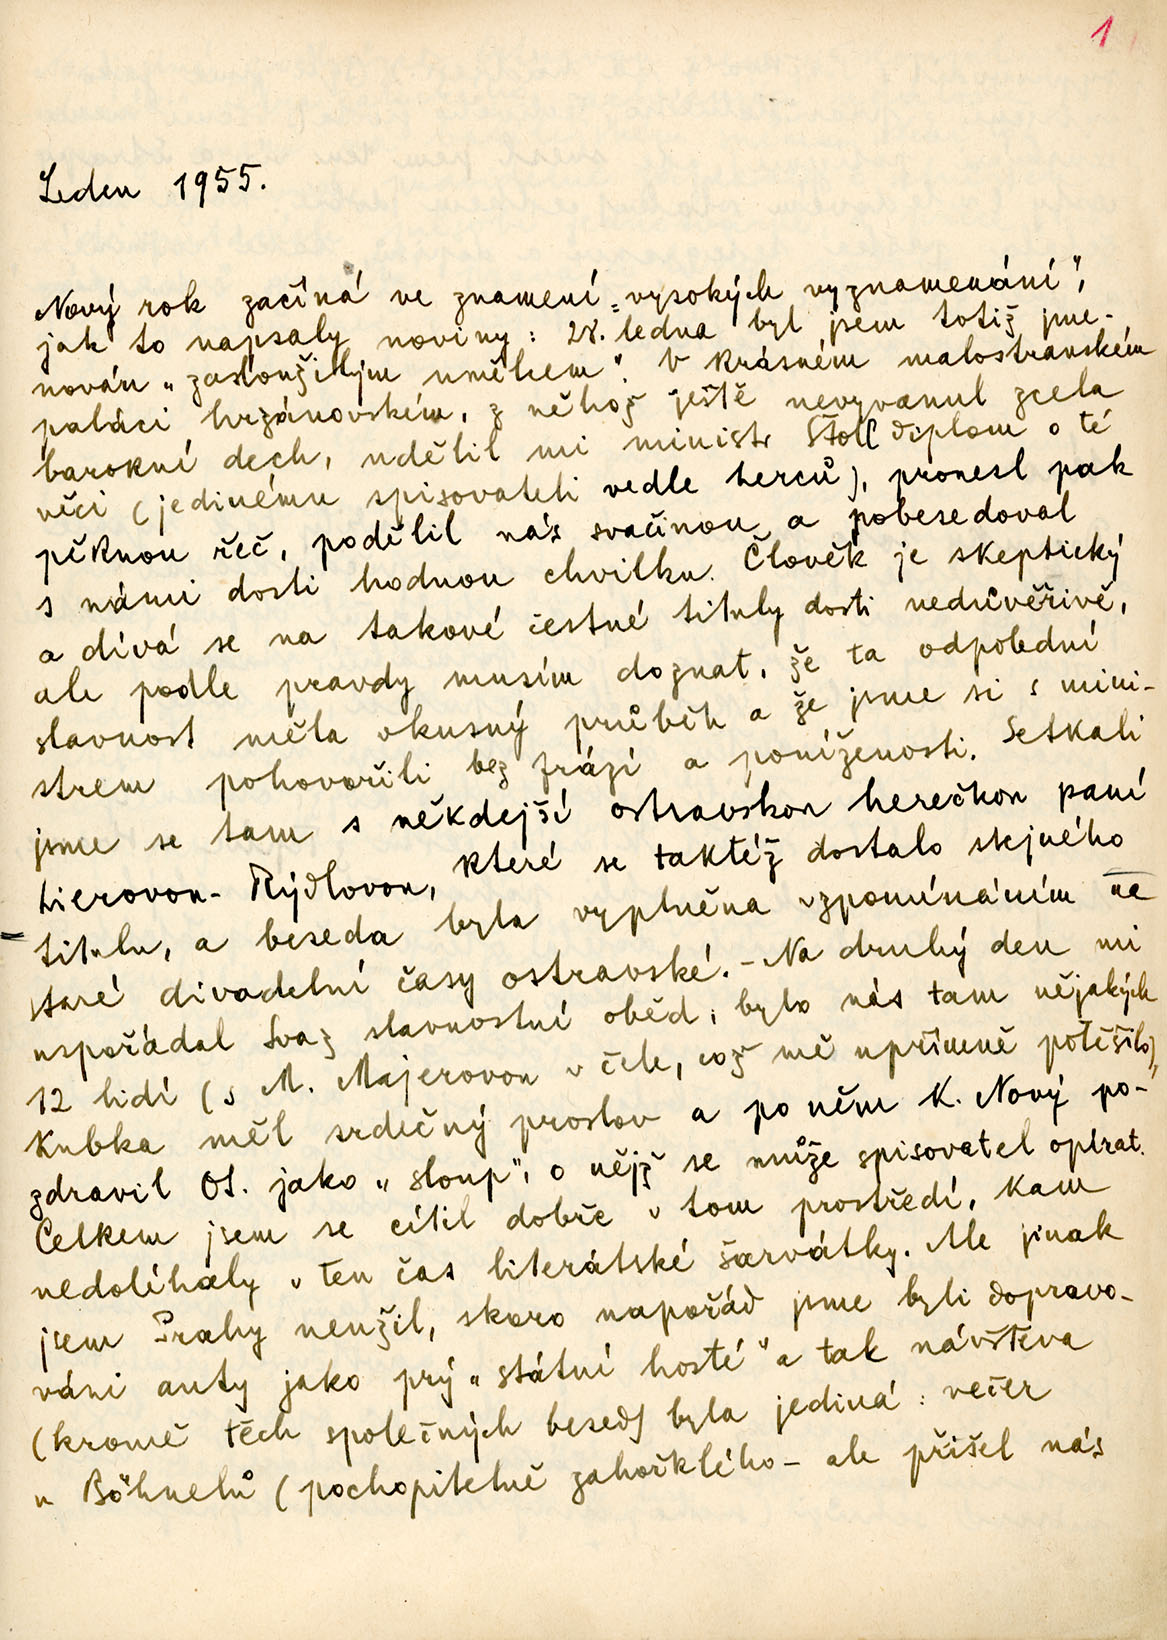 1
Leden 1955.
Nový rok začíná ve znamení „vysokých vyznamenání",
jak to napsaly noviny: 28. ledna byl jsem totiž jme-
nován „zasloužilým umělcem". V krásném malostranském
paláci hrzánovském, z něhož ještě nevyvanul zcela
barokní dech, udělil mi ministr Štoll diplom o té
věci (jedinému spisovateli vedle herců), pronesl pak
pěknou řeč, podělil nás svačinou a pobesedoval
s námi dosti hodnou chvilku. Člověk je skeptický
a dívá se na takové čestné tituly dosti nedůvěřivě,
ale podle pravdy musím doznat, že ta odpolední
slavnost měla vkusný průběh a že jsme si s mini-
strem pohovořili bez frází a poníženosti. Setkali
jsme se tam s někdejší ostravskou herečkou paní
Lierovou-Rýdlovou, které se taktéž dostalo stejného
titulu, a beseda byla vyplněna vzpomínáním na
staré divadelní časy ostravské. – Na druhý den mi
uspořádal Svaz slavnostní oběd; bylo nás tam nějakých
12 lidí (s M. Majerovou v čele, což mě upřímně potěšilo),
Kubka měl srdečný proslov a po něm K. Nový po-
zdravil OS. jako „sloup", o nějž se může spisovatel opírat.
Celkem jsem se cítil dobře v tom prostředí, kam
nedoléhaly v ten čas literátské šarvátky. Ale jinak
jsem Prahy neužil, skoro napořád jsme byli dopravo-
váni auty jako prý „státní hosté" a tak návštěva
(kromě těch společných besed) byla jediná: večer
u Böhnelů (pochopitelně zahořklého – ale přišel nás